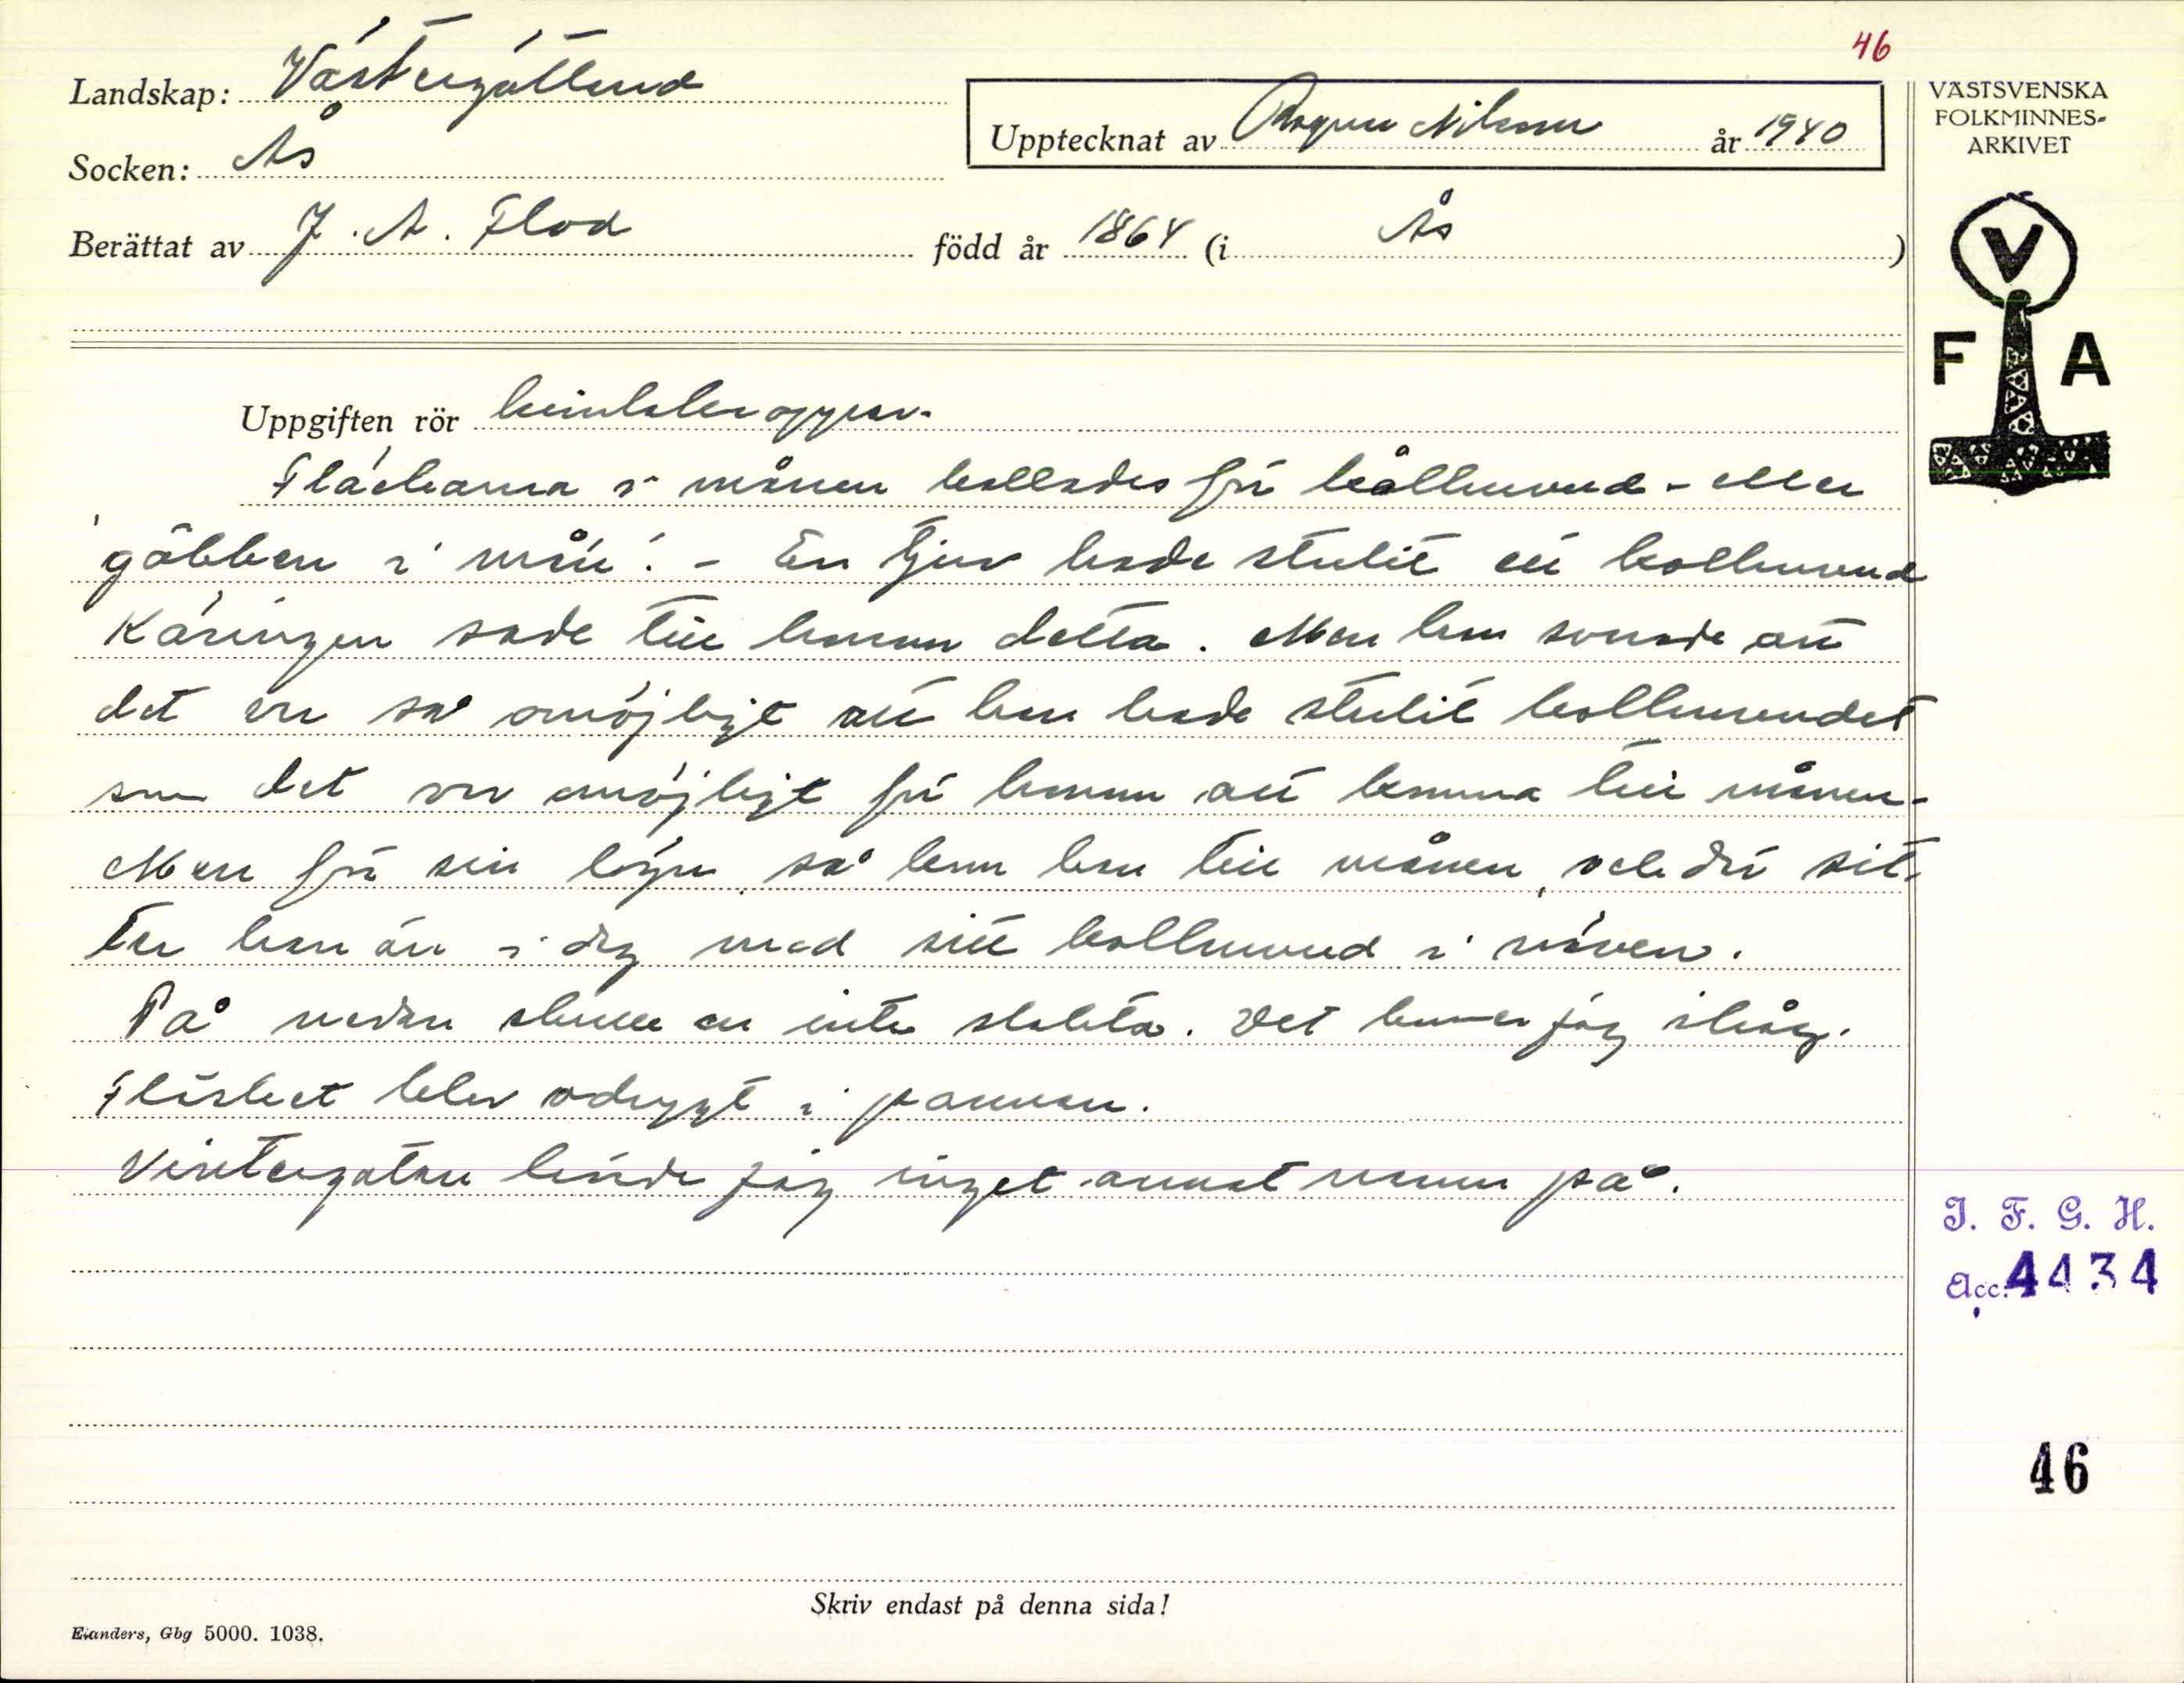 46
Landskap: Västergötland
Upptecknat av Ragnar Nilsson år 1940
Socken: Ås
Berättat av J. A. Flod född år 1864 (i Ås)
VÄSTSVENSKA
FOLKMINNES-
ARKIVET
V
F A
Uppgiften rör himlakroppar.
Fläckarna i månen kallades för kålhuvud - eller
'gôbben i mån'. - En tjuv hade stulit ett kålhuvud
Käringen sade till honom detta. Men han svarade att
det var så omöjligt att han hade stulit kålhuvudet
som det var omöjligt för honom att komma till månen.
Men för sin lögn så kom han till månen, och där sit-
ter han än i dag med sitt kålhuvud i näven.
På nedan skulle en inte slakta. Det kommer jag ihåg.
Fläsket blev odrygt i pannan.
Vintergatan hörde jag inget annat namn på.
I. F. G. H.
Acc. 4434
46
Skriv endast på denna sida!
Elanders, Gbg 5000. 1038.